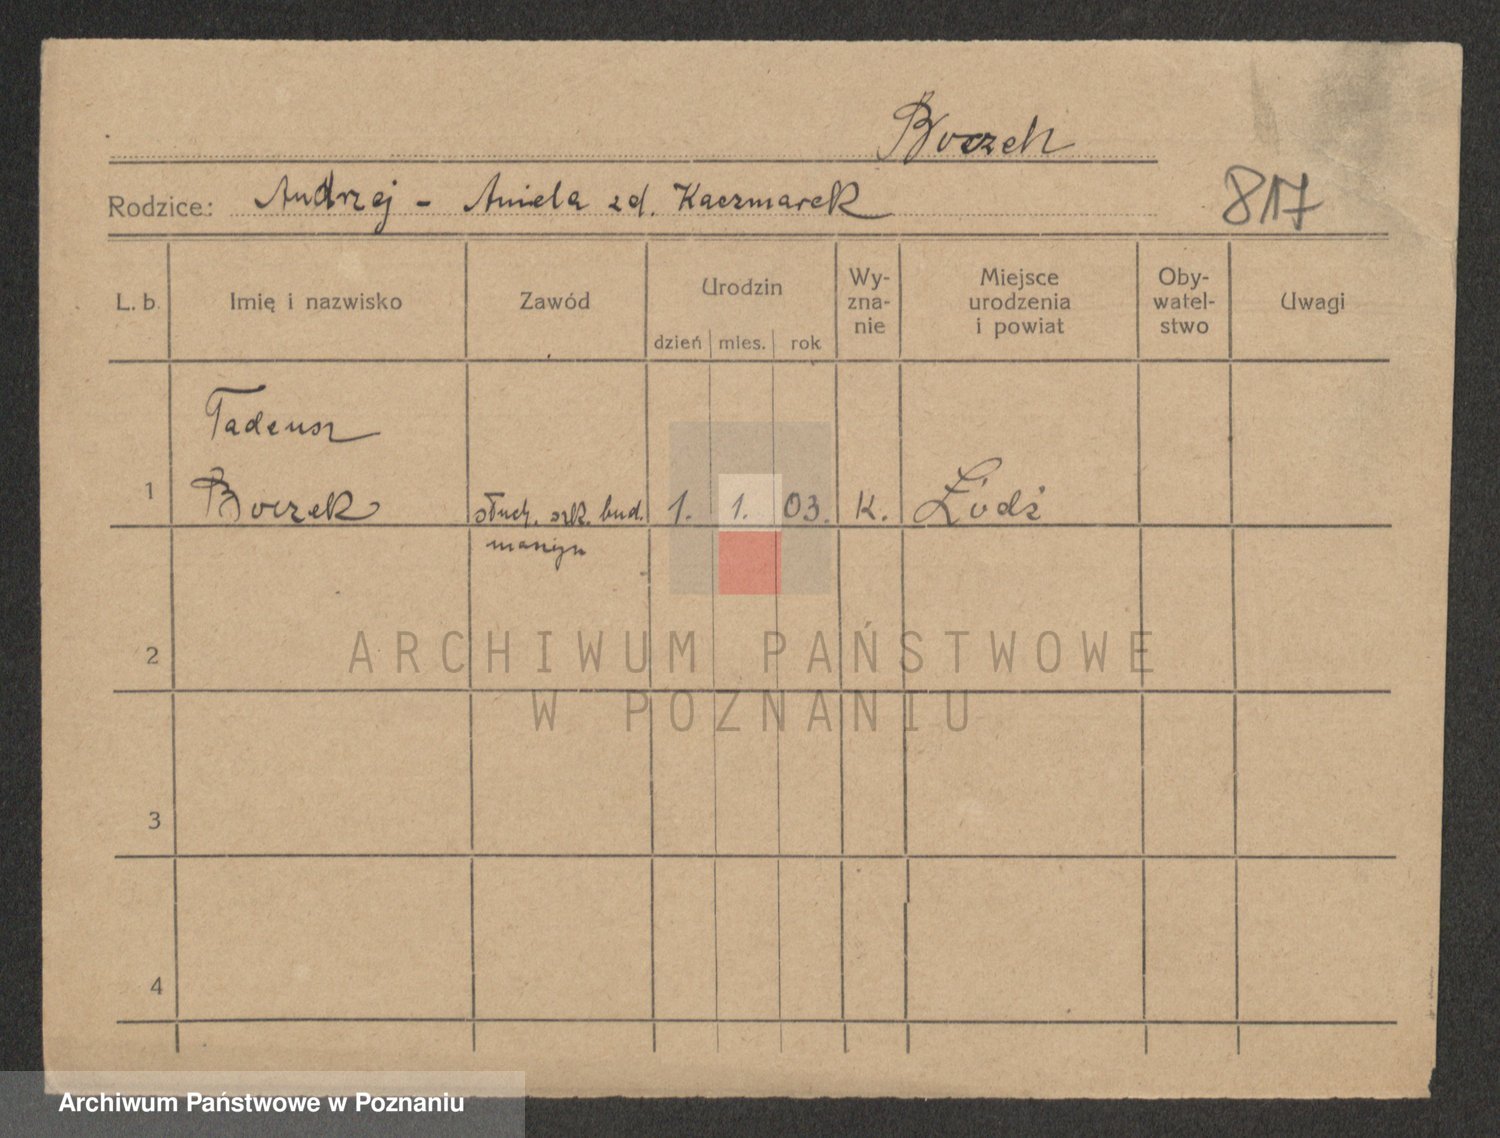 Boczek
Rodzice: Andrzej - Aniela zd. Kaczmarek
817
L. b. Imię i nazwisko Zawód Urodzin dzień mies. rok Wy-zna-nie Miejsce urodzenia i powiat Oby-watel-stwo Uwagi
Tadeusz
1 Boczek słuch. szk. bud. 1. 1. 03. K. Łódź
maszyn
2
ARCHIWUM PAŃSTWOWE
W POZNANIU
3
4
Archiwum Państwowe w Poznaniu